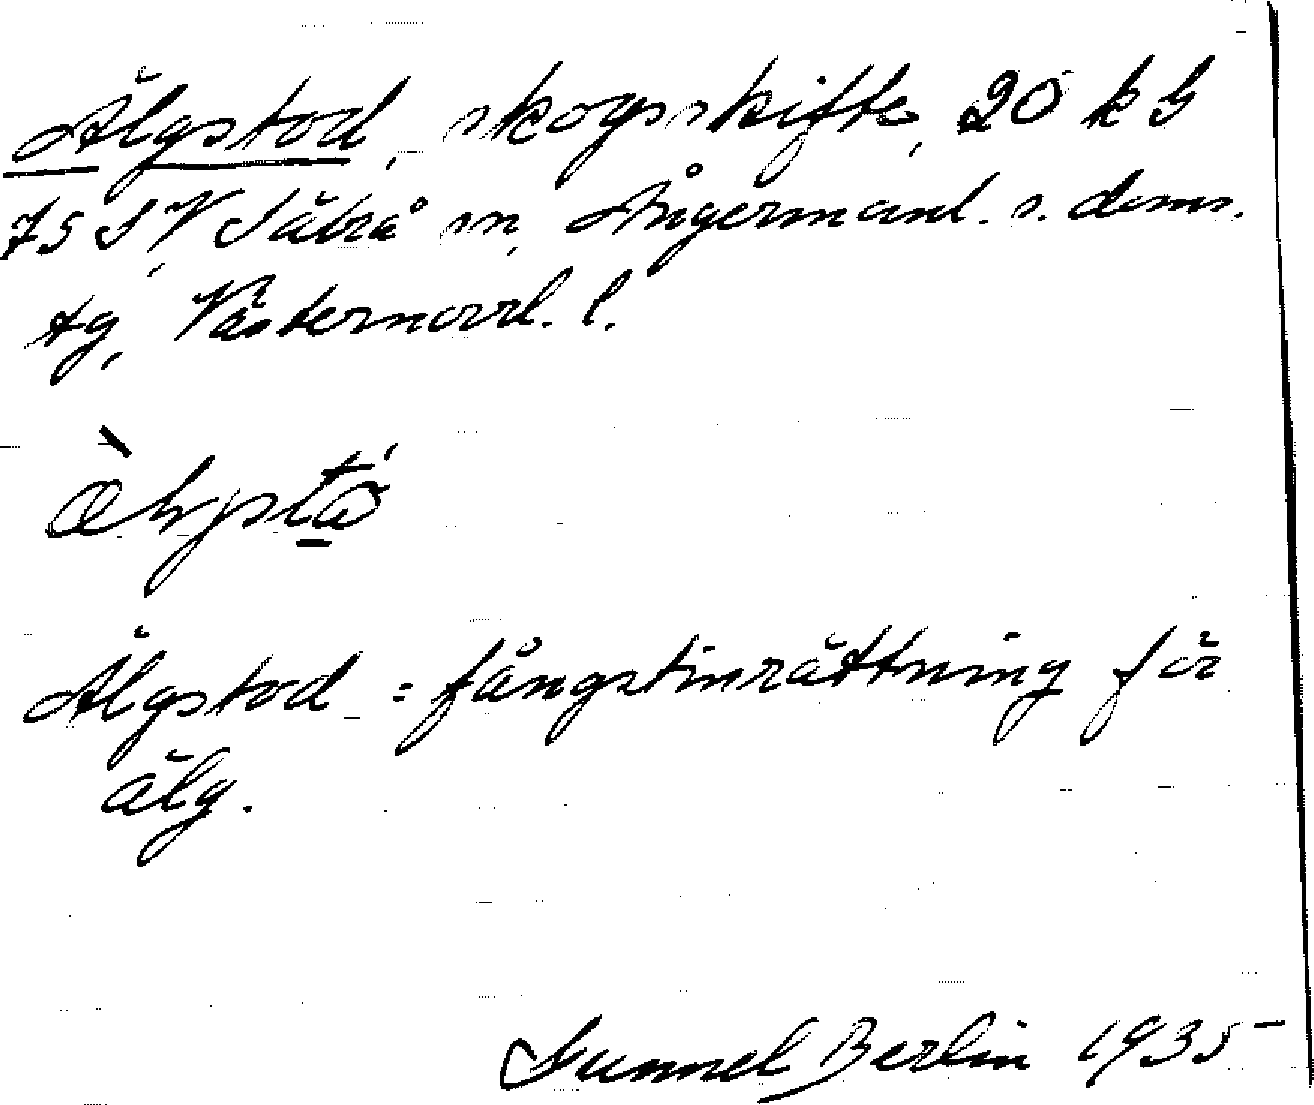 Älgstod, skogsskifte, 20 k b
75 S V Sätrå sn, Ångermanl. s. doms.
tg, Västernorrl. l.
Älgstod = fångstinrättning för
älg.
Gunnel Berlin 1935